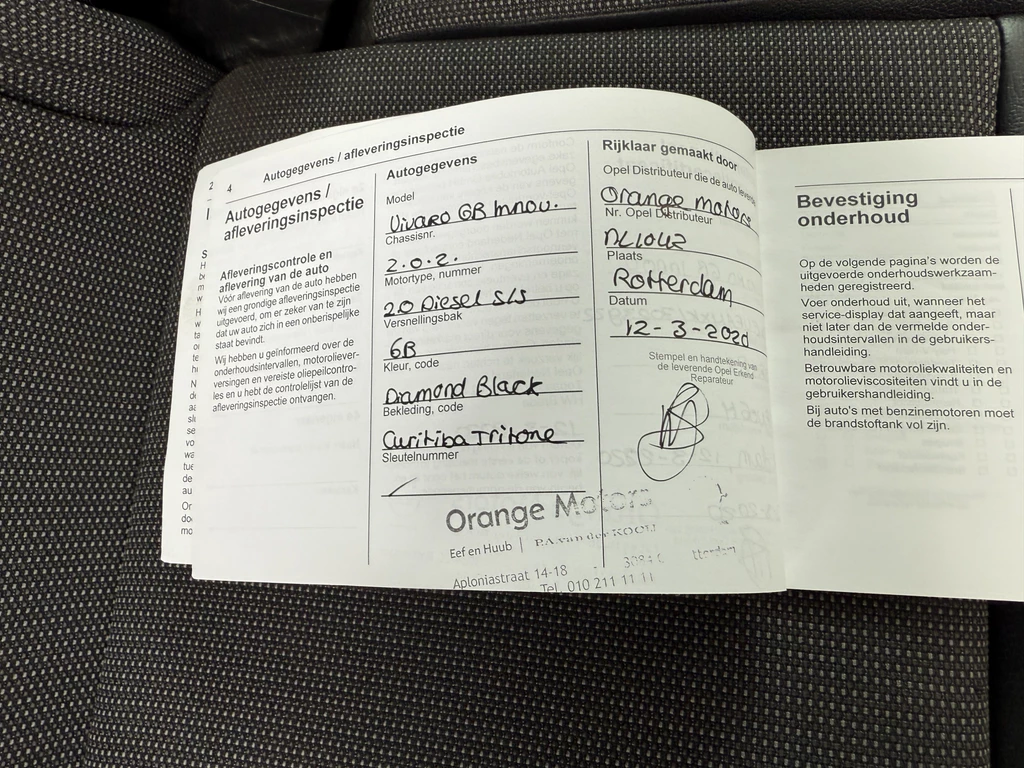 2
4
Autogegevens / afleveringsinspectie
Autogegevens /
afleveringsinspectie
Afleveringscontrole en
aflevering van de auto
Vóór aflevering van de auto hebben
wij een grondige afleveringsinspectie
uitgevoerd, om er zeker van te zijn
dat uw auto zich in een onberispelijke
staat bevindt.
Wij hebben u geïnformeerd over de
onderhoudsintervallen, motoroliever-
versingen en vereiste oliepeilcontro-
les en u hebt de controlelijst van de
afleveringsinspectie ontvangen.
Autogegevens
Model
Vivaro GB Innov.
Chassisnr.
2.0.2.
Motortype, nummer
2.0 Diesel S/S
Versnellingsbak
6B
Kleur, code
Diamond Black
Bekleding, code
Curitiba Tritone
Sleutelnummer
Rijklaar gemaakt door
Opel Distributeur die de auto
Orange motors
Nr. Opel Distributeur
NL1042
Plaats
Rotterdam
Datum
12-3-2020
Stempel en handtekening van
de leverende Opel Erkend
Reparateur
Orange Motors
Eef en Huub | P.A. van der KOOIJ
Aploniastraat 14-18
Tel. 010 211 11 11
Bevestiging
onderhoud
Op de volgende pagina's worden de
uitgevoerde onderhoudswerkzaam-
heden geregistreerd.
Voer onderhoud uit, wanneer het
service-display dat aangeeft, maar
niet later dan de vermelde onder-
houdsintervallen in de gebruikers-
handleiding.
Betrouwbare motoroliekwaliteiten en
motorolieviscositeiten vindt u in de
gebruikershandleiding.
Bij auto's met benzinemotoren moet
de brandstoftank vol zijn.